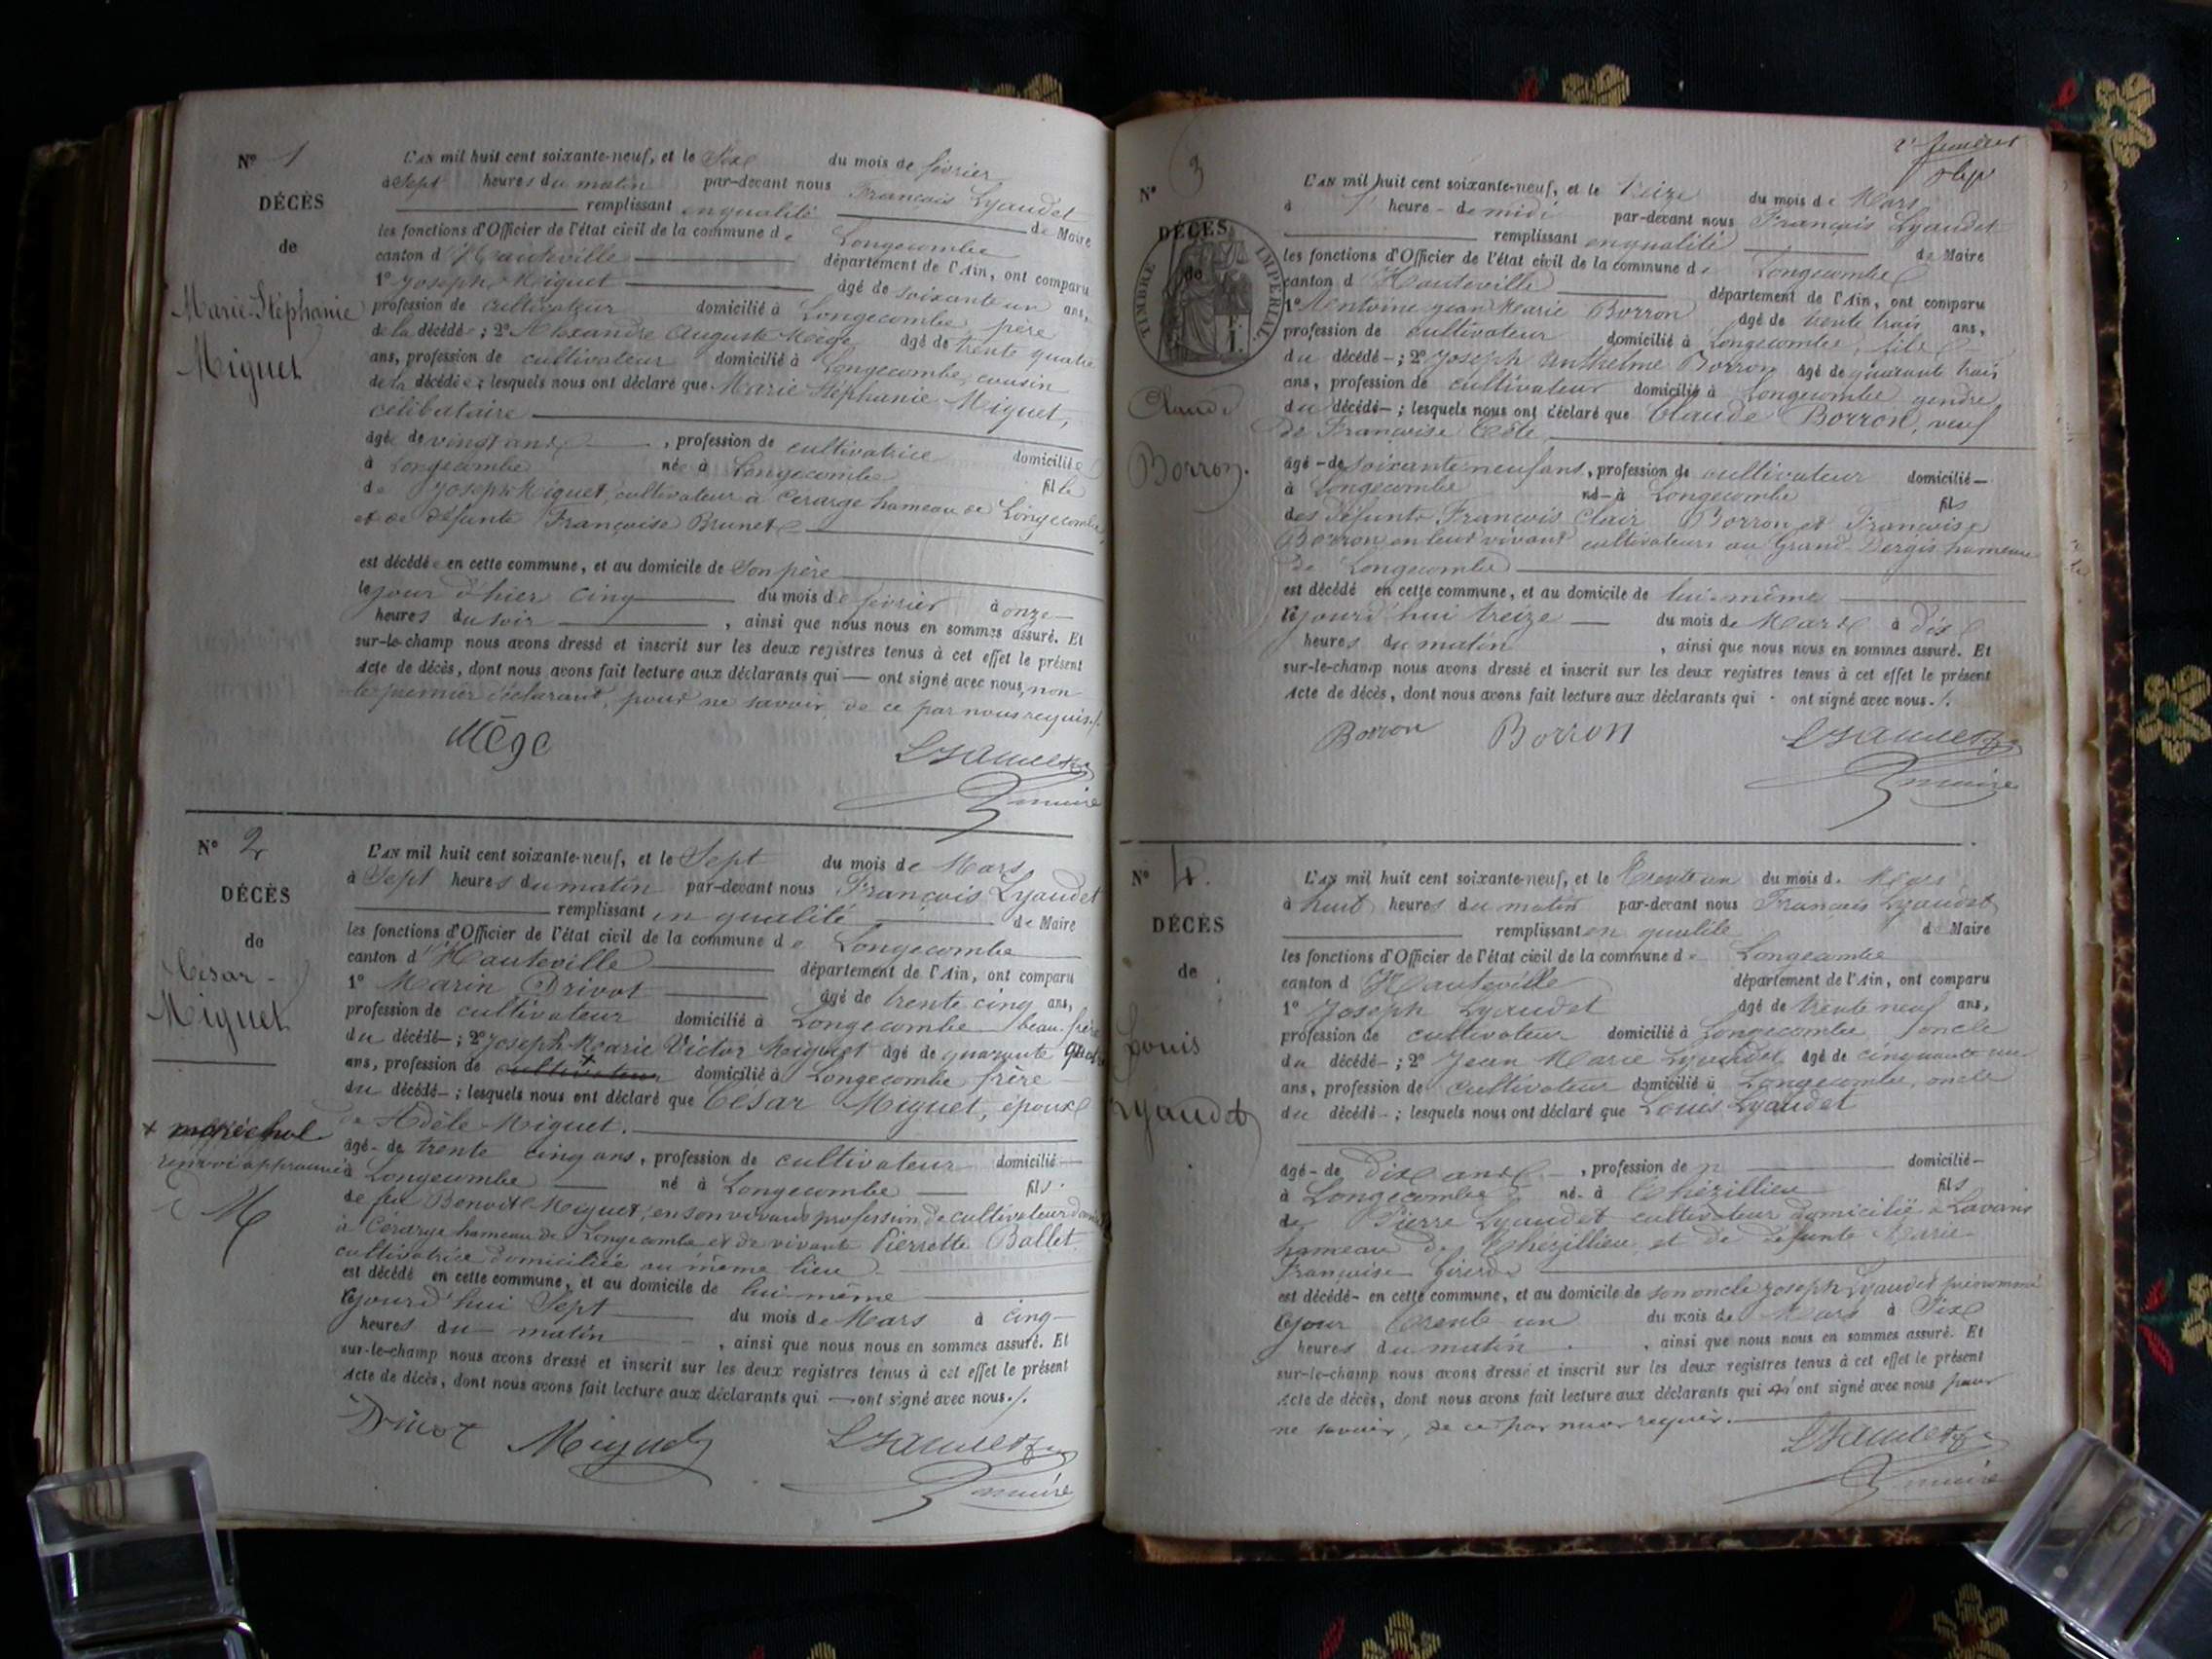 N° 1
DÉCÈS
de
Marie-Stéphanie
Miguet
L'AN mil huit cent soixante-neuf, et le Six du mois de février
à Sept heures du matin par-devant nous François Lyaudet
remplissant en qualité de Maire
les fonctions d'Officier de l'état civil de la commune de Longecombe
canton d'Hauteville département de l'Ain, ont comparu
1° Joseph Miguet âgé de soixante un ans,
profession de cultivateur domicilié à Longecombe, père
de la décédée ; 2° Alexandre Auguste Mège âgé de trente quatre
ans, profession de cultivateur domicilié à Longecombe, cousin
de la décédée ; lesquels nous ont déclaré que Marie Stéphanie Miguet,
célibataire
âgé de vingt ans , profession de cultivatrice domiciliée
à Longecombe née à Longecombe fille
de Joseph Miguet, cultivateur à Cerarge hameau de Longecombe,
et de défunte Françoise Brunet
est décédée en cette commune, et au domicile de Son père
le jour d'hier cinq du mois de février à onze
heures du soir , ainsi que nous nous en sommes assuré. Et
sur-le-champ nous avons dressé et inscrit sur les deux registres tenus à cet effet le présent
Acte de décès, dont nous avons fait lecture aux déclarants qui — ont signé avec nous, non
le premier déclarant, pour ne savoir, de ce par nous requis./.
Mège Lyaudet
maire
N° 2
DÉCÈS
de
César
Miguet
L'AN mil huit cent soixante-neuf, et le Sept du mois de Mars
à Sept heures du matin par-devant nous François Lyaudet
remplissant en qualité de Maire
les fonctions d'Officier de l'état civil de la commune de Longecombe
canton d'Hauteville département de l'Ain, ont comparu
1° Marin Drivot âgé de trente cinq ans,
profession de cultivateur domicilié à Longecombe beau-frère
du décédé ; 2° Joseph Marie Victor Miguet âgé de quarante quatre
ans, profession de cultivateur domicilié à Longecombe frère
du décédé ; lesquels nous ont déclaré que César Miguet, époux
de Adèle Miguet.
x maréchal
renvoi approuvé
M
âgé de trente cinq ans, profession de cultivateur domicilié
à Longecombe né à Longecombe fils
de feu Benoit Miguet, en son vivant profession de cultivateur
à Cérarge hameau de Longecombe et de vivante Pierrette Ballet
cultivatrice domiciliée au même lieu
est décédé en cette commune, et au domicile de lui-même
ce jourd'hui Sept du mois de Mars à cinq
heures du matin , ainsi que nous nous en sommes assuré. Et
sur-le-champ nous avons dressé et inscrit sur les deux registres tenus à cet effet le présent
Acte de décès, dont nous avons fait lecture aux déclarants qui — ont signé avec nous./.
Drivot Miguet Lyaudet
maire
2e feuillet
N° 3
DÉCÈS
de
TIMBRE IMPÉRIAL
Claude
Borron.
L'AN mil huit cent soixante-neuf, et le treize du mois de Mars
à 1 heure de midi par-devant nous François Lyaudet
remplissant en qualité de Maire
les fonctions d'Officier de l'état civil de la commune de Longecombe
canton d'Hauteville département de l'Ain, ont comparu
1° Antoine Jean Marie Borron âgé de trente trois ans,
profession de cultivateur domicilié à Longecombe, fils
du décédé ; 2° Joseph Anthelme Borron âgé de quarante trois
ans, profession de cultivateur domicilié à Longecombe gendre
du décédé ; lesquels nous ont déclaré que Claude Borron, veuf
de Françoise Côte
âgé de soixante neuf ans, profession de cultivateur domicilié
à Longecombe né à Longecombe fils
des défunts François Clair Borron et Françoise
Borron en leur vivant cultivateurs au Grand Dergis hameau
de Longecombe
est décédé en cette commune, et au domicile de lui-même
ce jourd'hui treize du mois de Mars à dix
heures du matin , ainsi que nous nous en sommes assuré. Et
sur-le-champ nous avons dressé et inscrit sur les deux registres tenus à cet effet le présent
Acte de décès, dont nous avons fait lecture aux déclarants qui ont signé avec nous./.
Borron Borron Lyaudet
maire
N° 4.
DÉCÈS
de
Louis
Lyaudet
L'AN mil huit cent soixante-neuf, et le Trente un du mois de Mars
à huit heures du matin par-devant nous François Lyaudet
remplissant en qualité de Maire
les fonctions d'Officier de l'état civil de la commune de Longecombe
canton d'Hauteville département de l'Ain, ont comparu
1° Joseph Lyaudet âgé de trente neuf ans,
profession de cultivateur domicilié à Longecombe oncle
du décédé ; 2° Jean Marie Lyaudet âgé de cinquante un
ans, profession de cultivateur domicilié à Longecombe, oncle
du décédé ; lesquels nous ont déclaré que Louis Lyaudet
âgé de dix ans , profession de domicilié
à Longecombe né à Thézillieu fils
de Pierre Lyaudet cultivateur domicilié à Lavans
hameau de Thézillieu et de défunte Marie
Françoise Girerd
est décédé en cette commune, et au domicile de son oncle Joseph Lyaudet prénommé
ce jour Trente un du mois de Mars à Six
heures du matin , ainsi que nous nous en sommes assuré. Et
sur-le-champ nous avons dressé et inscrit sur les deux registres tenus à cet effet le présent
Acte de décès, dont nous avons fait lecture aux déclarants qui n'ont signé avec nous pour
ne savoir, de ce par nous requis.
Lyaudet
maire